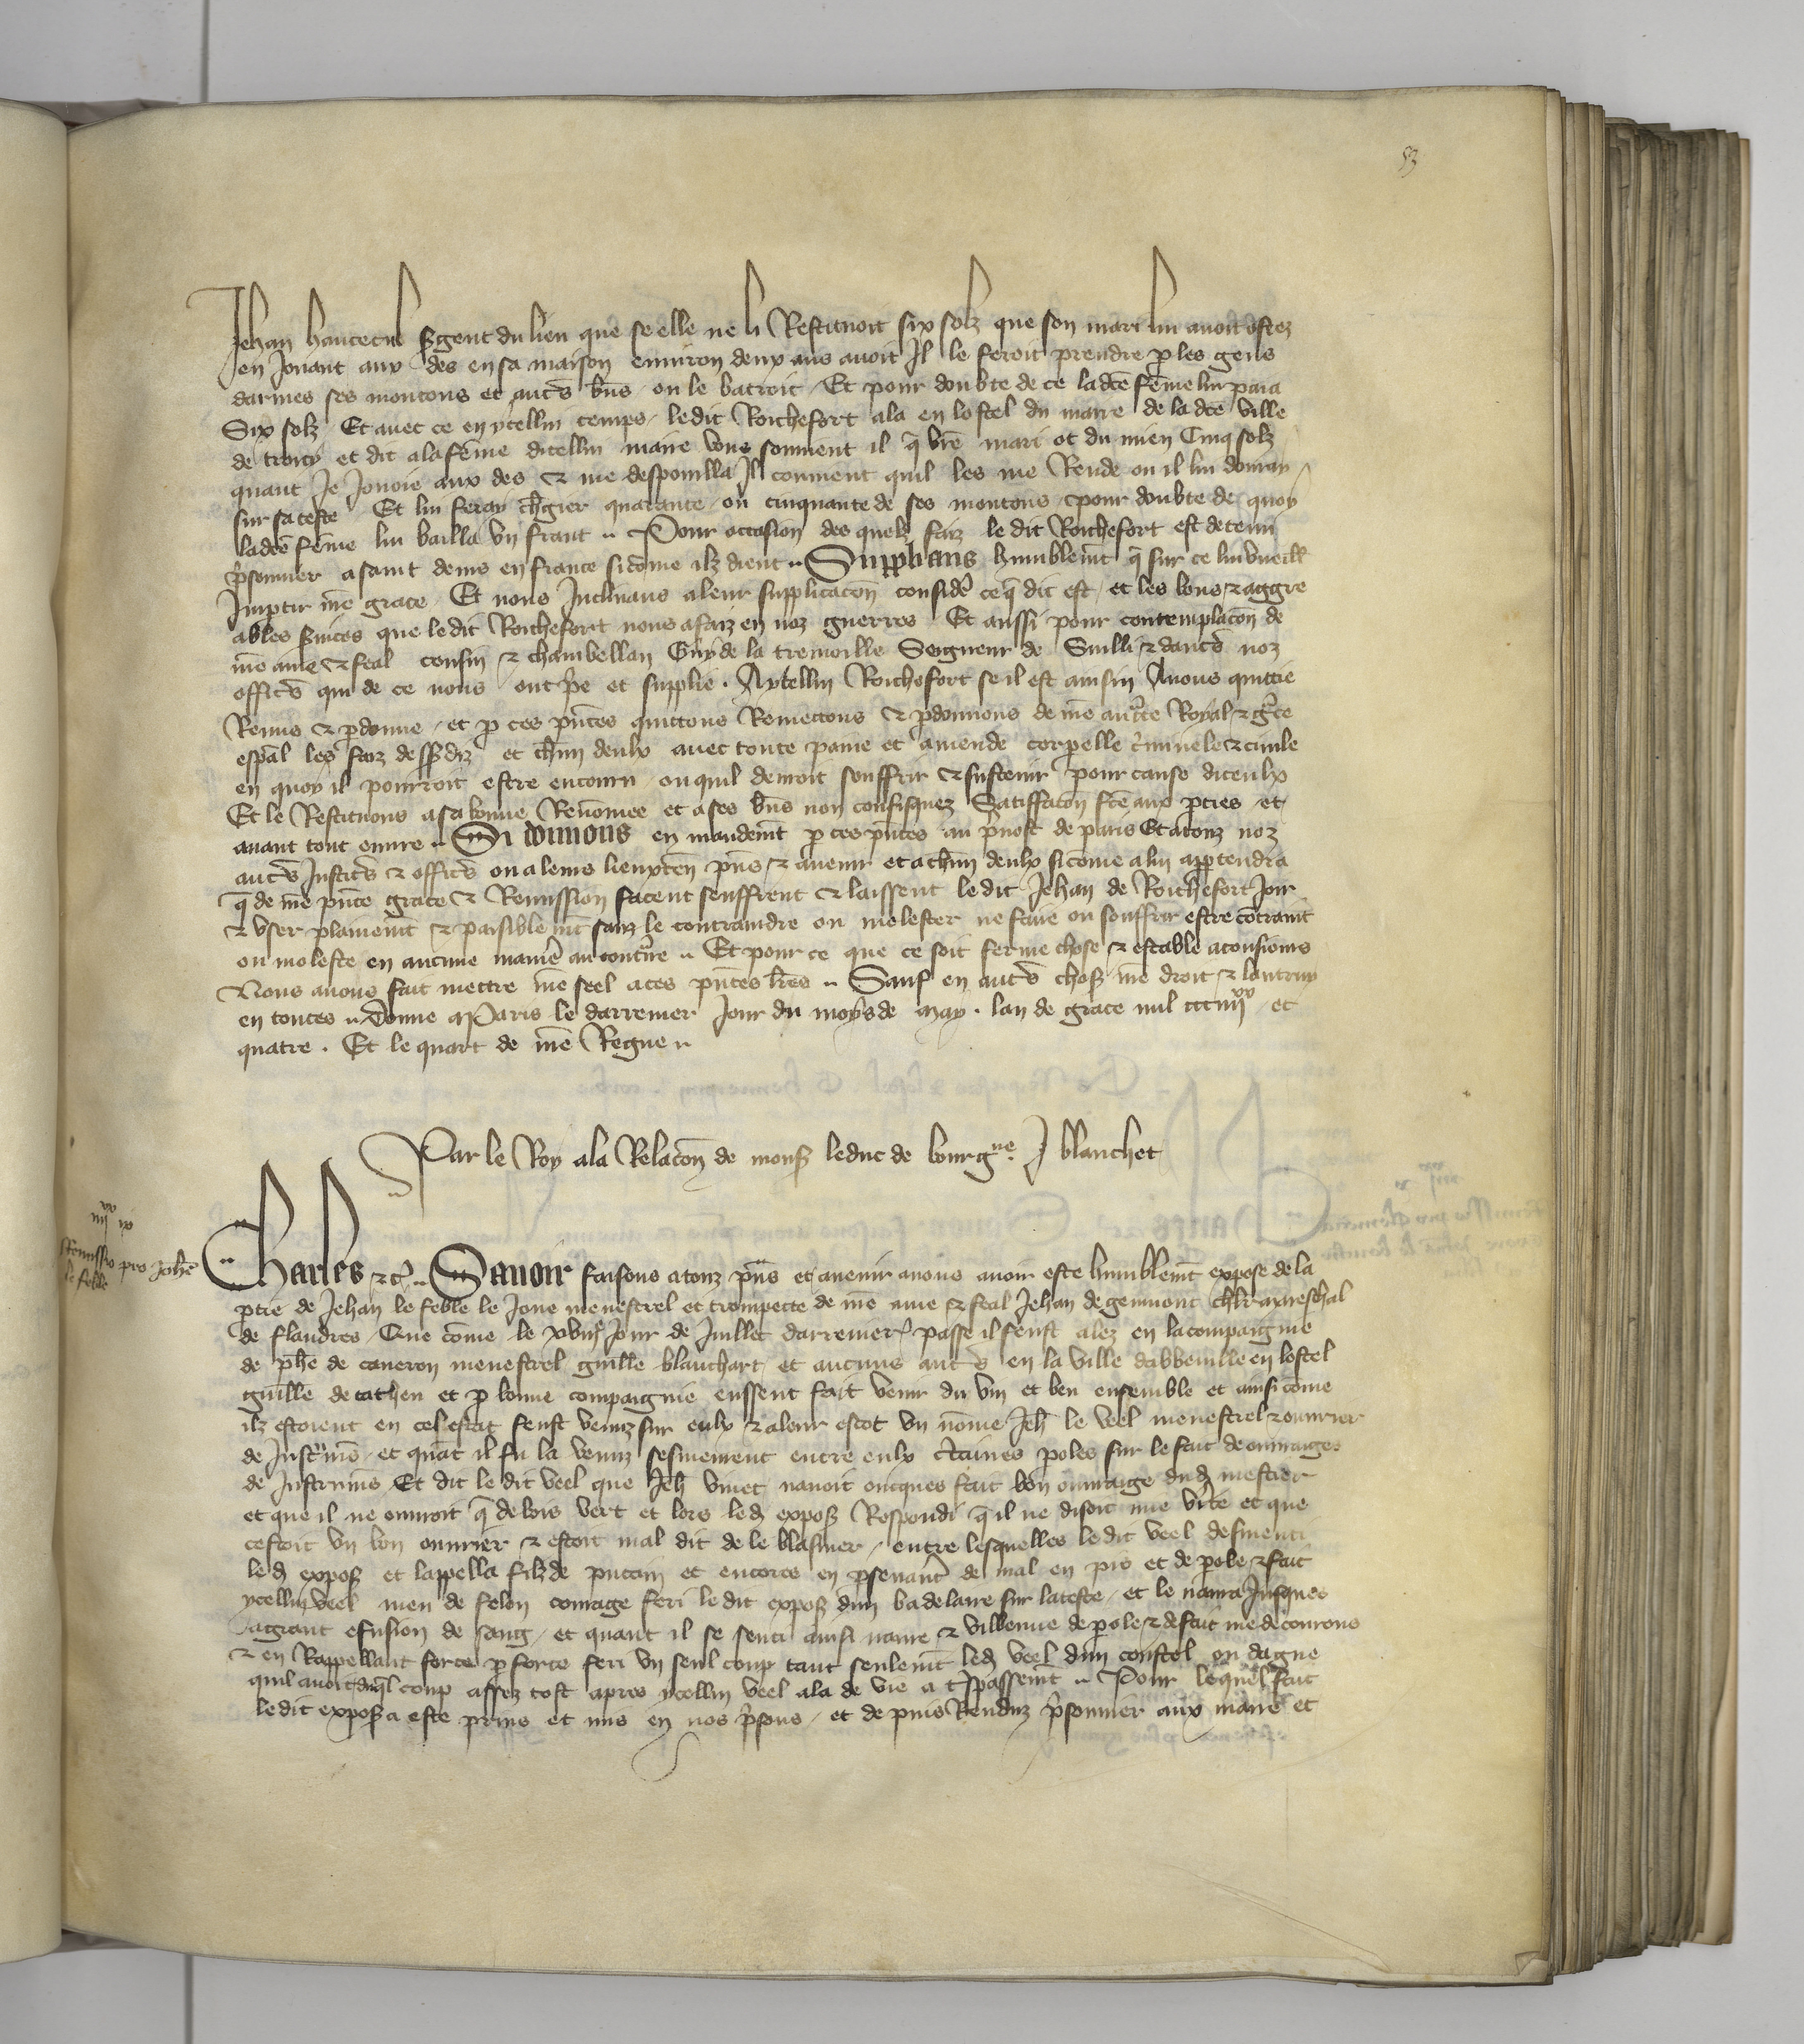 53
Jehan hautecul sgent du lieu que se elle ne li Restituoit six solz que son mari lui auoit ostez
en Jouant aux des en sa maison enuiron deux ans auoit Il le feroit prendre p les gens
darmes ses moutons et autrs bns ou le batroit Et pour doubte de ce ladce feme lui paia
Six solz Et auec ce en ycellui temps ledit Roichefort ala en lostel du maire de la dce ville
de troicy et dit a la feme dicellui maire vous souuient il q vre mari ot du mien Cinq solz
quant Je Jouoie aux des & me despouilla Il conuient quil les me Rende ou il lui donray
sur sa teste Et lui feray chgier quarante ou cinquante de ses moutons pour doubte de quoy
ladce feme lui bailla vn franc Pour occasion des quelz faiz le dit Roichefort est detenu
prsonnier a saint denis en france sicome ilz dient Supplians humblemt q sur ce lui vueill
Impartir nre grace Et nous Inclinans a leur supplicacon consider ce q dit est et les bons & aggre
ables suices que ledit Roichefort nous a faiz en noz guerres Et aussi pour contemplacon de
nre ame & feal cousin & chambellan Guy de la tremoille Seigneur de Suilli & dautrs noz
officrs qui de ce nous ont prie et supplie Aycellui Roichefort se il est ainsin Auons quittie
Remis & pdonne et p ces pntes quittons Remettons & pdonnons de nre aucte Royal & grce
espal les faiz dessdiz et chun deulx auec toute paine et amende corpelle criminele & ciuile
en quoy il pourroit estre encouru ou quil deuroit souffrir & sustenir pour cause diceulx
Et le Restituons a sa bonne Renomee et a ses bns non confisquez Satiffacon fce aux pties et
auant tout euure Si donnons en mandemt p ces pntes au preuost de paris Et a touz noz
autrs Justicrs & officrs ou a leurs lieuxten pns & auenir et a chun deulx sicome a lui appertendra
q de nre pnte grace & Remission facent seuffrent & laissent ledit Jehan de Roichefort Joir
& vser plainemt & paisiblemt sanz le contraindre ou molester ne faire ou souffrir estre contraint
ou moleste en aucune maniere au contrre Et pour ce que ce soit ferme chose & estable a tousiours
Nous auons fait mettre nre seel a ces pntes lres Sauf en autrs choses nre droit & lautruy
en toutes Donne a Paris le darrenier Jour du moys de may lan de grace mil ccciiiixx et
quatre Et le quart de nre Regne
Par le Roy a la Relacon de mons le duc de bourgne J blanchet
iiiixx ix
Remissio pro Johe
le feble
Charles &c Sauoir faisons a touz pns et auenir a nous auoir este humblemt expose de la
ptie de Jehan le feble le Jone menestrel et trompette de nre ame & feal Jehan de gemmont chlr mareschal
de flandres Que come le xviiie Jour de Juillet darrenierement passe il feust alez en la compaignie
de phe de caneron menestrel guille blanchart et aucuns autrs en la ville dabbeuille en lostel
guille de cathen et p bonne compaignie eussent fait venir du vin et beu ensemble et ainsi come
ilz estoient en cel estat feust venuz sur eulx & a leur escot vn nome Jeh le veel menestrel & ouurier
de Instrumens et quant il fu la venuz sesmeurent entre eulx ctaines poles sur le fait de ouuraiges
de Instrumens Et dit le dit veel que Jeh viuet nauoit oncques fait bon ouuraige dud mestier
et que il ne ouuroit q de bois vert et lors led expos Respondi q il ne disoit mie vrite et que
cestoit vn bon ouurier & estoit mal dit de le blasmer entre lesquelles le dit veel desmenti
led expos et lappella filz de putain et encores en pseuerant de mal en pis et de pole & fait
ycellui veel meu de felon courage feri le dit expos dun badelaire sur la teste et le naura Jusques
a grant effusion de sang et quant il se senti ainsi naure & villenne de pole & de fait meu de courous
& en Rappellant force p force feri vn seul coup tant seulemt led veel dun coustel ou dague
quil auoit duql coup assez tost apres ycellui veel ala de vie a trspassemt Pour lequel fait
ledit expos a este prins et mis en nos prsons et depuis Renduz prsonnier aux maire et